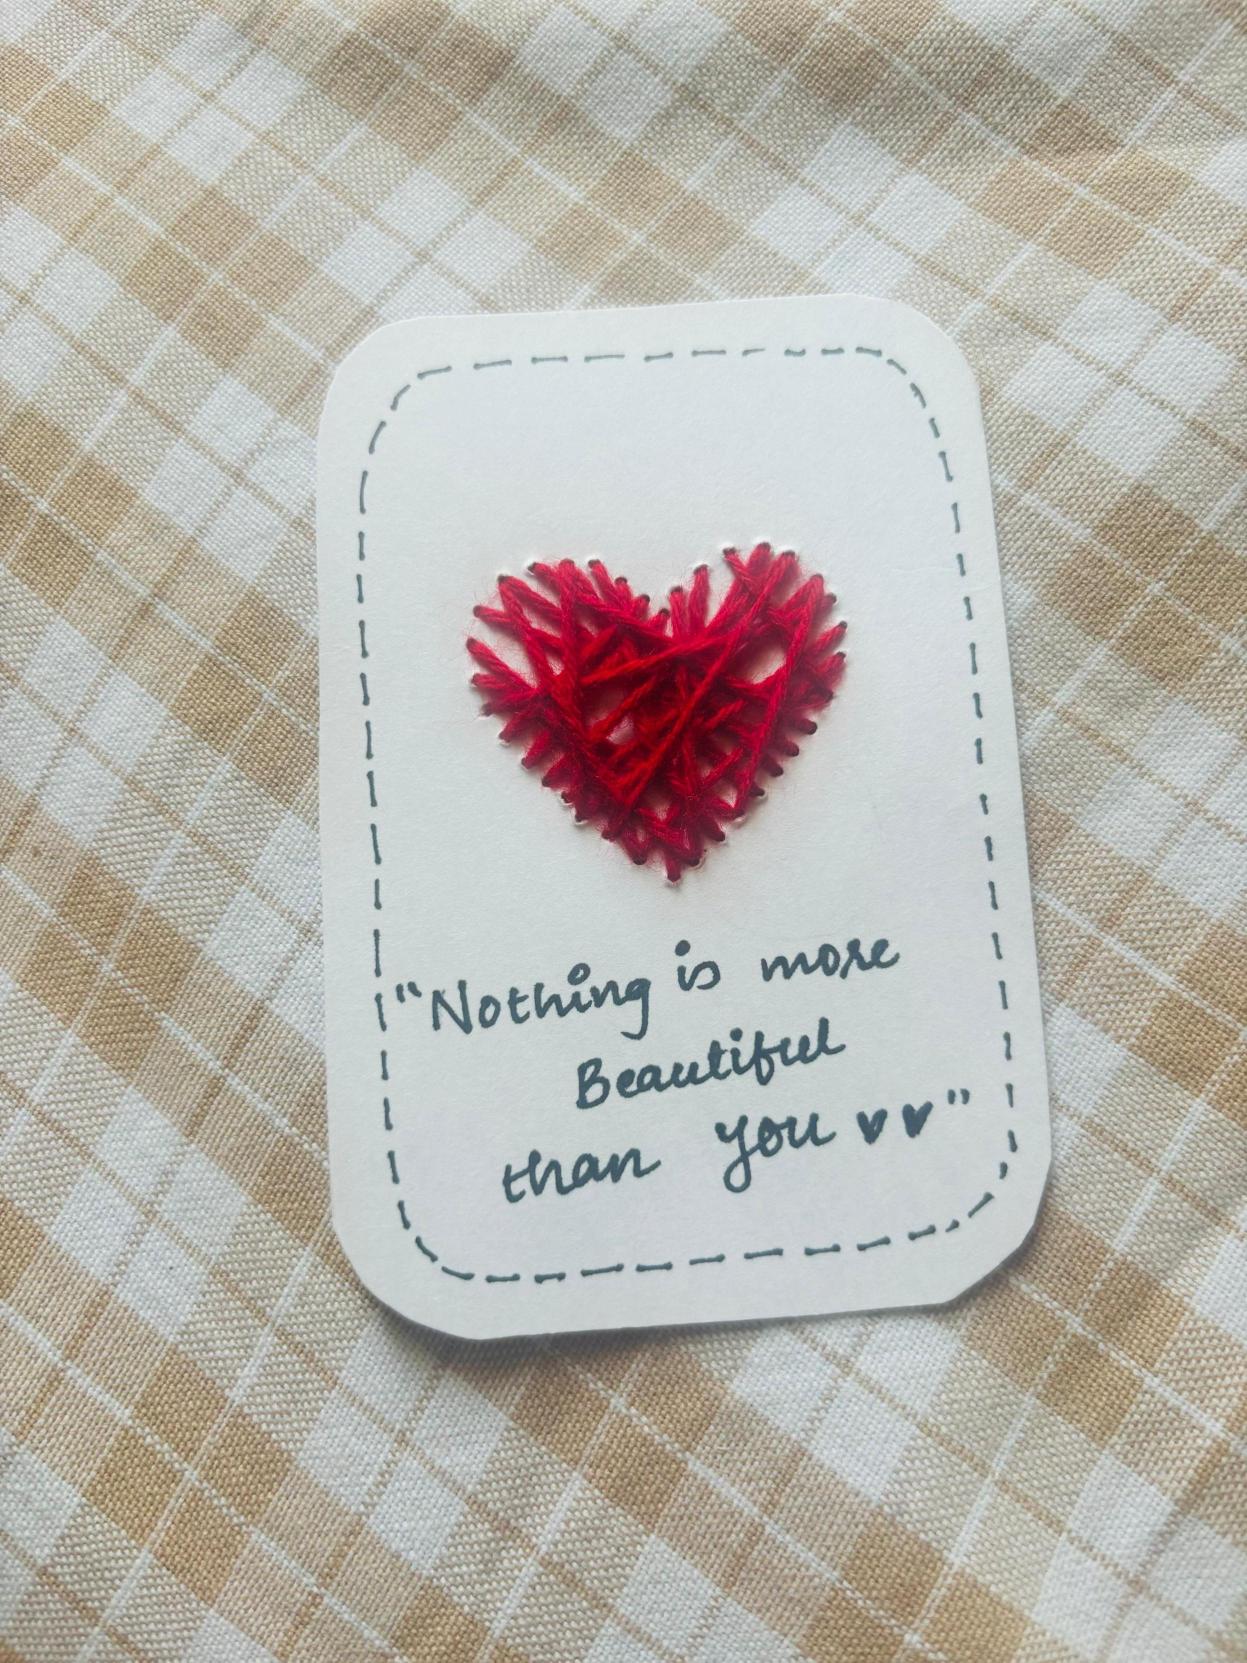 "Nothing is more
Beautiful
than you ♥♥"